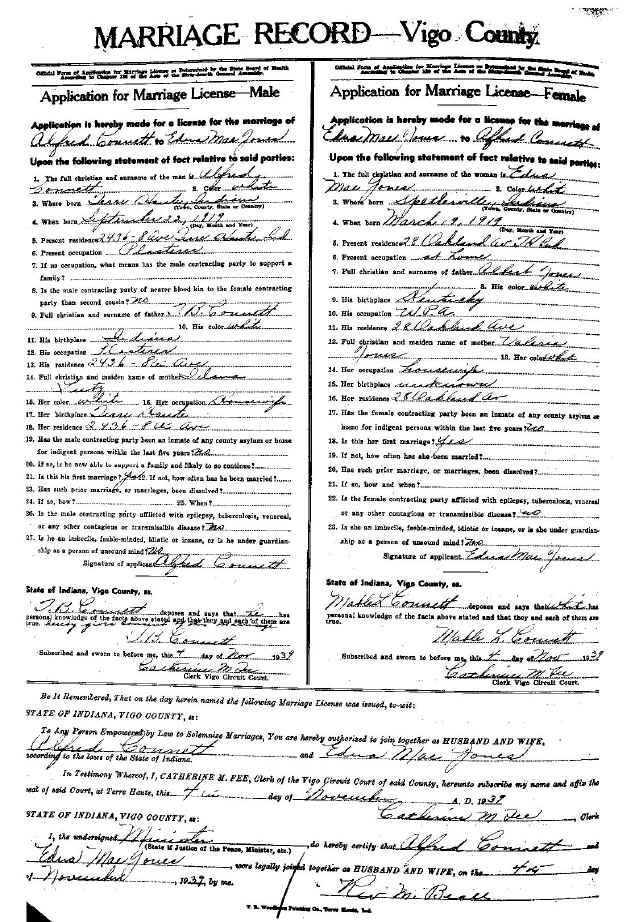 MARRIAGE RECORD—Vigo County.
Official Form of Application for Marriage License as Determined by the State Board of Health
According to Chapter 126 of the Acts of the Sixty-fourth General Assembly.
Application for Marriage License—Male
Application is hereby made for a license for the marriage of
Alfred Connett to Edna Mae Jones
Upon the following statement of fact relative to said parties:
1. The full christian and surname of the man is Alfred
Connett 2. Color white
3. Where born Terre Haute, Indiana
(Town, County, State or Country)
4. When born September 22, 1919
(Day, Month and Year)
5. Present residence 2436 - 8 Ave Terre Haute Ind
6. Present occupation Plasterer
7. If no occupation, what means has the male contracting party to support a
family?
8. Is the male contracting party of nearer blood kin to the female contracting
party than second cousin? no
9. Full christian and surname of father T. B. Connett
10. His color white
11. His birthplace Indiana
12. His occupation Plasterer
13. His residence 2436 - 8th Ave
14. Full christian and maiden name of mother
Lentz
15. Her color white 16. Her occupation Housewife
17. Her birthplace Terre Haute
18. Her residence 2436 - 8th Ave
19. Has the male contracting party been an inmate of any county asylum or home
for indigent persons within the last five years? no
20. If so, is he now able to support a family and likely to so continue?
21. Is this his first marriage? yes If not, how often has he been married?
23. Has such prior marriage, or marriages, been dissolved?
24. If so, how? 25. When?
26. Is the male contracting party afflicted with epilepsy, tuberculosis, venereal,
or any other contagious or transmissible disease? no
27. Is he an imbecile, feeble-minded, idiotic or insane, or is he under guardian-
ship as a person of unsound mind? no
Signature of applicant Alfred Connett
State of Indiana, Vigo County, ss.
T. B. Connett deposes and says that he has
personal knowledge of the facts above stated and that they and each of them are
true.
T. B. Connett
Subscribed and sworn to before me, this 4 day of Nov 1939
Catherine M. Fee
Clerk Vigo Circuit Court.
Official Form of Application for Marriage License as Determined by the State Board of Health
According to Chapter 126 of the Acts of the Sixty-fourth General Assembly.
Application for Marriage License—Female
Application is hereby made for a license for the marriage of
Edna Mae Jones to Alfred Connett
Upon the following statement of fact relative to said parties:
1. The full christian and surname of the woman is Edna
Mae Jones 2. Color white
3. Where born Indiana
(Town, County, State or Country)
4. When born March 19, 1919
(Day, Month and Year)
5. Present residence 28 Oakland Av T H Ind
6. Present occupation at home
7. Full christian and surname of father Albert Jones
8. His color white
9. His birthplace Kentucky
10. His occupation W.P.A.
11. His residence 28 Oakland Ave
12. Full christian and maiden name of mother Valeria
Jones 13. Her color white
14. Her occupation housewife
15. Her birthplace unknown
16. Her residence 28 Oakland Av
17. Has the female contracting party been an inmate of any county asylum or
home for indigent persons within the last five years? no
18. Is this her first marriage? Yes
19. If not, how often has she been married?
20. Has such prior marriage, or marriages, been dissolved?
21. If so, how and when?
22. Is the female contracting party afflicted with epilepsy, tuberculosis, venereal,
or any other contagious or transmissible disease? no
23. Is she an imbecile, feeble-minded, idiotic or insane, or is she under guardian-
ship as a person of unsound mind? no
Signature of applicant Edna Mae Jones
State of Indiana, Vigo County, ss.
Mable L Connett deposes and says that she has
personal knowledge of the facts above stated and that they and each of them are
true.
Mable L Connett
Subscribed and sworn to before me, this 4 day of Nov 1939
Catherine M. Fee
Clerk Vigo Circuit Court.
Be It Remembered, That on the day herein named the following Marriage License was issued, to-wit:
STATE OF INDIANA, VIGO COUNTY, ss:
To Any Person Empowered by Law to Solemnize Marriages, You are hereby authorized to join together as HUSBAND AND WIFE,
Alfred Connett and Edna Mae Jones
according to the laws of the State of Indiana.
In Testimony Whereof, I, CATHERINE M. FEE, Clerk of the Vigo Circuit Court of said County, hereunto subscribe my name and affix the
seal of said Court, at Terre Haute, this 4th day of November A. D. 1939
Catherine M Fee, Clerk
STATE OF INDIANA, VIGO COUNTY, ss:
I, the undersigned Minister, do hereby certify that Alfred Connett and
(State if Justice of the Peace, Minister, etc.)
Edna Mae Jones, were legally joined together as HUSBAND AND WIFE, on the 4th day
of November 1939 by me.
Rev M. Beall
Printing Co., Terre Haute, Ind.